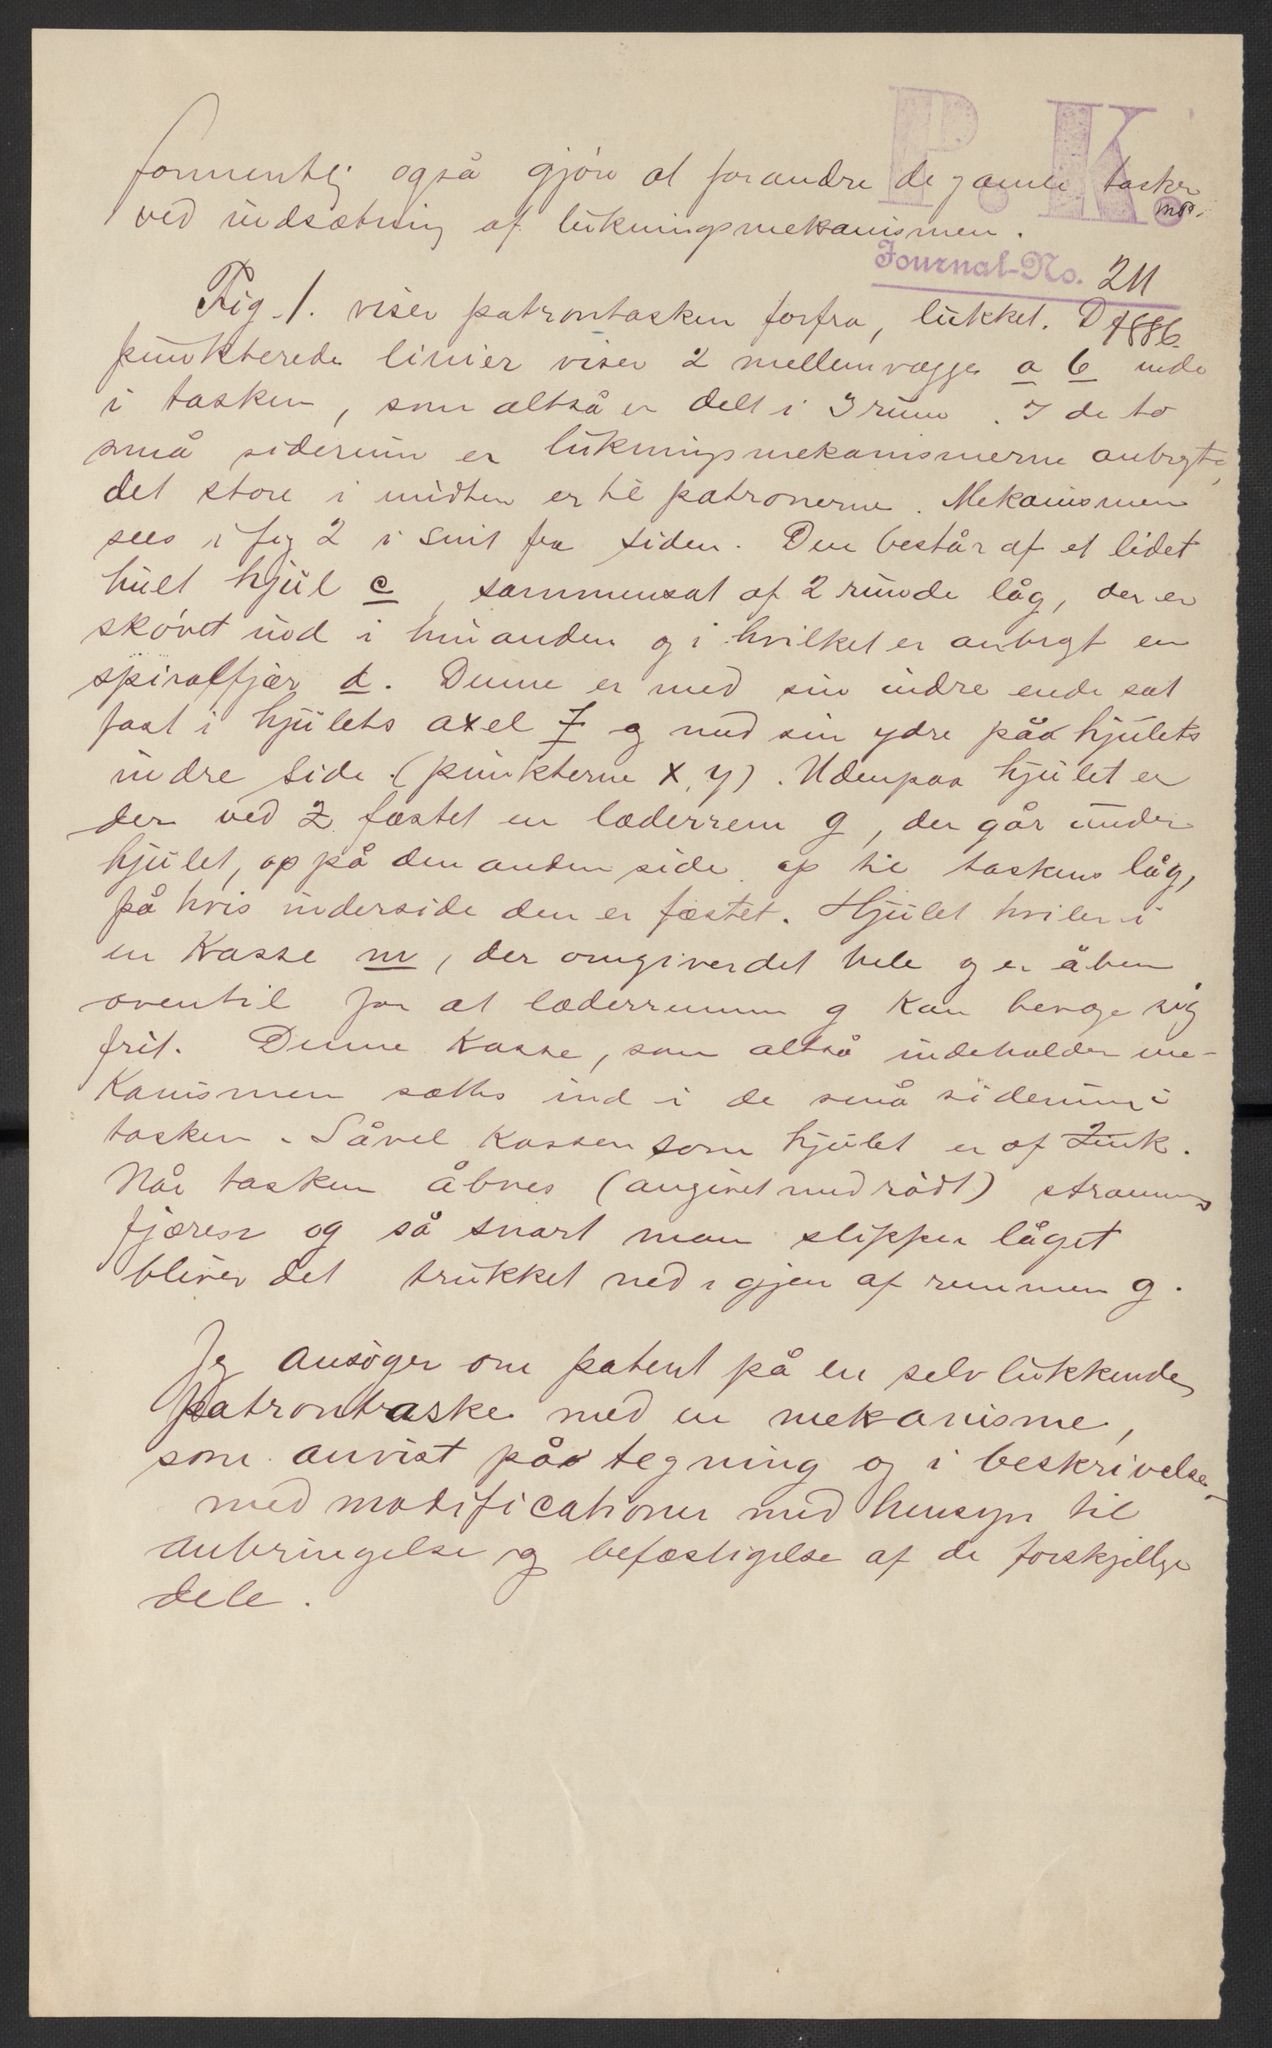 P. K.
formentlig også gjøre at forandre de gamle tasker
ved indsætning af lukningsmekanismen.
Journal-No. 211
1886
Fig. 1. viser patrontasken forfra, lukket. D
punkterede linier viser 2 mellemvægge a b inde
i tasken, som altså er delt i 3 rum. I de to
små siderum er lukningsmekanismerne anbragt,
det store i midten er til patronerne. Mekanismen
sees i fig 2 i snit fra siden. Den består af et lidet
hult hjul c, sammensat af 2 runde låg, der er
skøvet ind i hinanden og i hvilket er anbragt en
spiralfjær d. Denne er med sin indre ende sat
fast i hjulets axel f og med sin ydre på hjulets
indre side (punkterne x, y). Udenpaa hjulet er
der ved z fæstet en læderrem g, der går under
hjulet, op på den anden side op til taskens låg,
på hvis inderside den er fæstet. Hjulet hviler i
en Kasse m, der omgiver det hele og er åben
oventil for at læderremmen g kan bevæge sig
frit. Denne Kasse, som altså indeholder me-
kanismen sættes ind i de små siderum i
tasken. Såvel Kassen som hjulet er af Zink.
Når tasken åbnes (angivet med rødt) strammes
fjæren og så snart man slipper låget
bliver det trukket ned igjen af remmen g.
Jeg ansøger om patent på en selvlukkende
patrontaske med en mekanisme,
som anvist på tegning og i beskrivelse
med modificationer med hensyn til
anbringelse og befæstigelse af de forskjellige
dele.